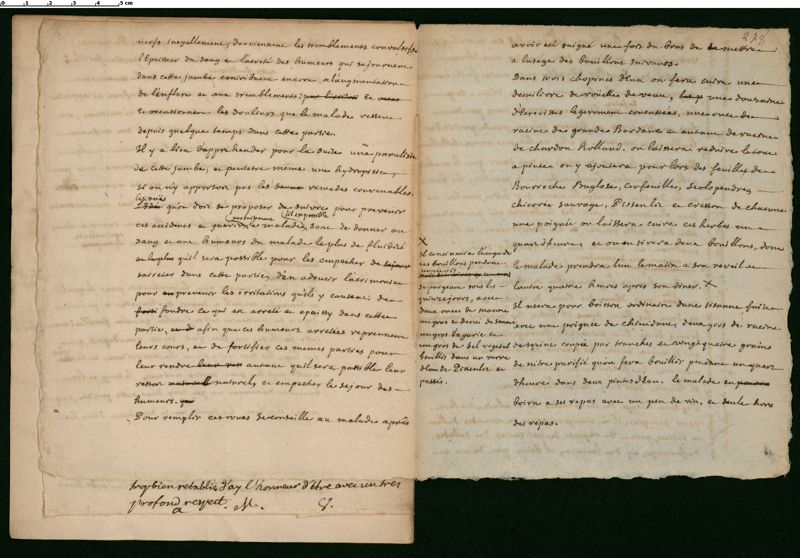 nerfs inegallement, surviennent les tremblements convulsifs.
L'epaisseur du sang et l'acreté des humeurs qui sejournent
dans cette jambe contribuent encore a l'augmentation
de l'enflure et aux tremblements; et
les douleurs que le malade ressent
depuis quelque temps dans cette partie.
Il y a lieu d'apprehender pour la suite une paralisie
de cette jambe, et peutetre même une hydropisie,
si on n'y apportoit pas les remedes convenables.
les vuës
qu'on doit se proposer de suivre pour prevenir
s'il est possible
ces accidents et guerir le malade, sont de donner au
sang et aux humeurs du malade le plus de fluidité
qu'il sera possible pour les empecher de
s'arreter dans cette partie; d'en adoucir l'acrimonie
pour prevenir les irritations qu'ils y causent; de
fondre ce qui est arreté et epaissy dans cette
partie, afin que ces humeurs arretées reprennent
leurs cours, et de fortifier ces mêmes parties pour
leur rendre autant qu'il sera possible leur
ressort naturel, et empecher le sejour des
humeurs.
Pour remplir ces vuës je conseille au malade après
tres bien retablis j'ay l'honneur d'être avec un tres
profond respect. M.
278
avoir été saigné une fois du bras de se mettre
a l'usage des bouillons suivants.
Dans trois chopines d'eau on fera cuire une
demilivre de roüelle de veau, une douzaine
d'Ecrevisses legerement concassées, une once de
racine de grande Bardane et autant de racine
de chardon Rolland. on laissera reduire le tout
a pinte. on y ajoutera pour lors des feuilles de
Bourroche Buglose, cerfeuille, scolopendre,
chicorée sauvage, Pissenlit et cresson de chacune
une poignée on laissera cuire ces herbes un
quart d'heure, et on en tirera deux bouillons, dont
le malade prendra l'un le matin a son reveil et
l'autre quatre heures après son diner. X
Il usera pour boisson ordinaire d'une tisanne faite
avec une poignée de chiendent, deux gros de racine
de squine coupée par tranches et vingt quatre grains
de nitre purifié qu'on fera bouillir pendant un quart
d'heure dans deux pintes d'eau. le malade en
boira a ses repas avec un peu de vin, et seule hors
des repas.
X
Il continuera l'usage de
ces bouillons pendant
se purgeant tous les
quinze jours, avec
deux onces de manne
un gros et demi de sené
un gros d'agaric et
un gros de sel vegetal
bouillis dans un verre
d'eau de Pissenlit et
passés.